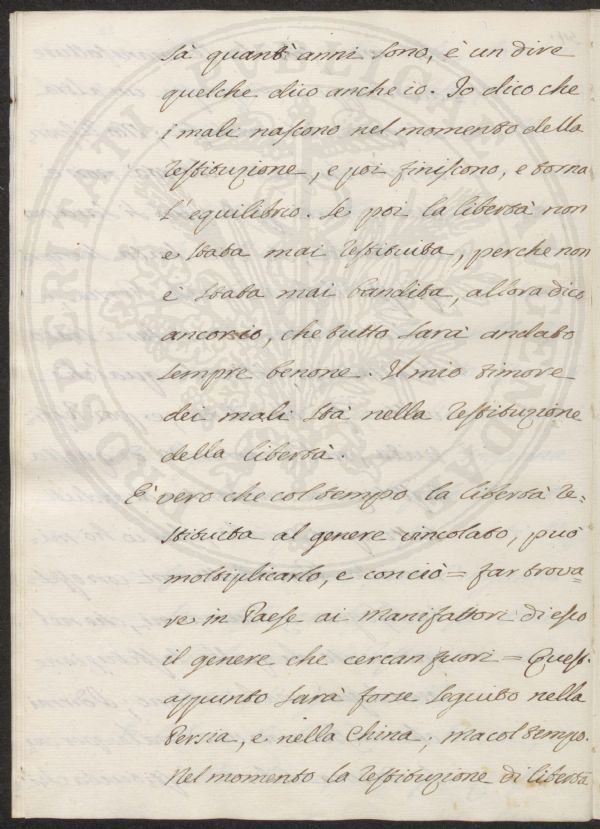 sà quant'anni sono, è un dire
quelche dico anche io. Io dico che
i mali nascono nel momento della
restituzione, e poi finiscono, e torna
l'equilibrio. Se poi la libertà non
è stata mai restituita, perche non
è stata mai bandita, allora dico
ancor io, che tutto sarà andato
sempre benone. Il mio timore
dei mali stà nella restituzione
della libertà.
È vero che col tempo la libertà re=
stituita al genere vincolato, può
moltiplicarlo, e con ciò = far trova=
re in Paese ai Manifattori di esso
il genere che cercan fuori = Quest.
appunto sarà forse seguito nella
Persia, e nella China; ma col tempo.
Nel momento la restituzione di libertà
PROSPERITATI PUBLICAE AUGENDAE